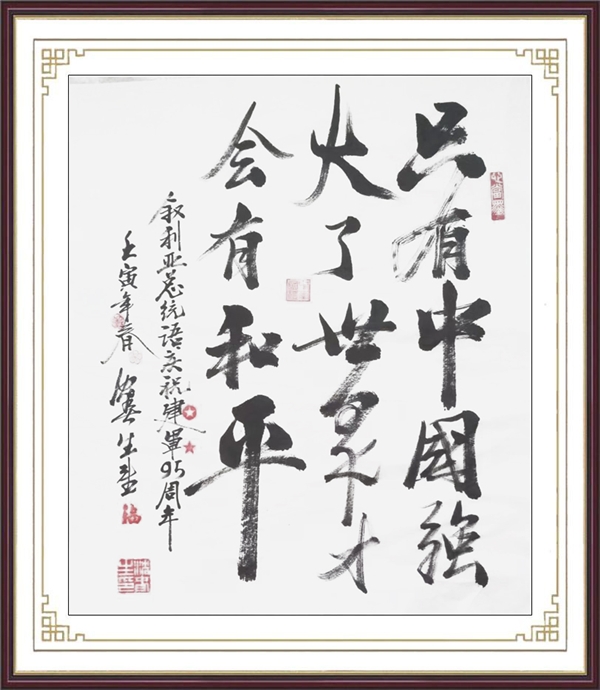 只有中國強
大了世界才
会有和平
叙利亚总统语庆祝建軍95周年
壬寅年春 生